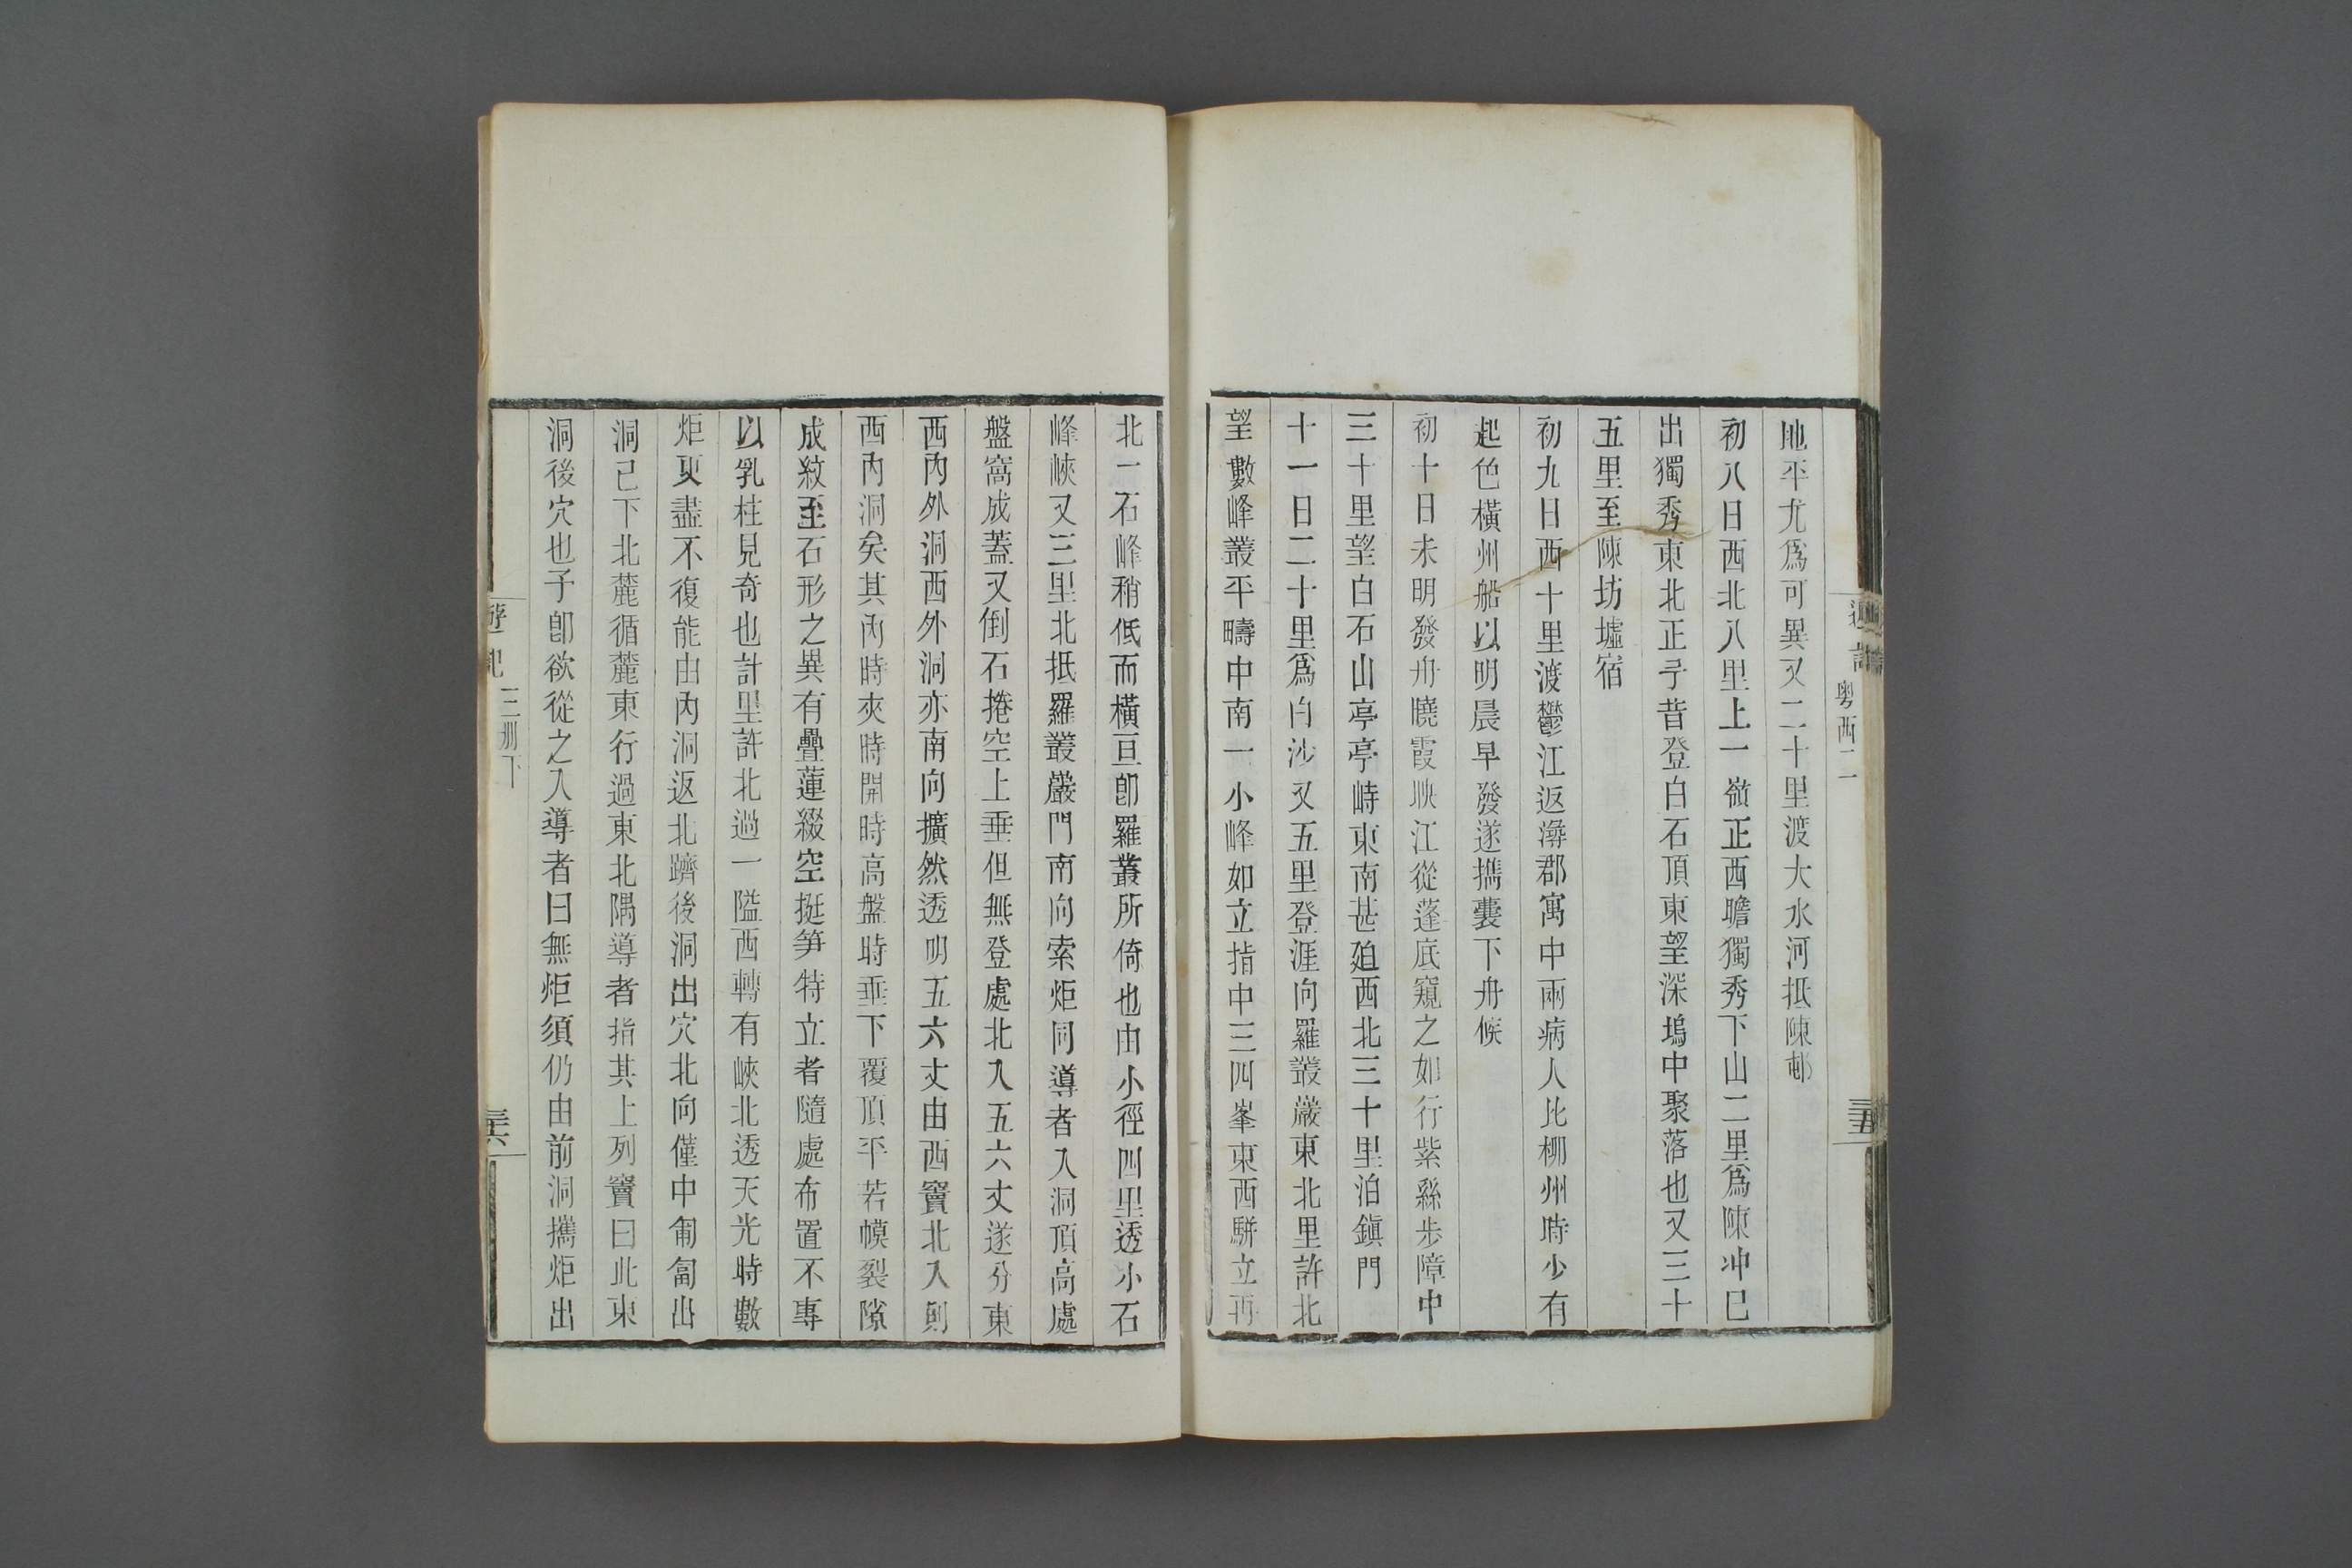 地平尤爲可異又二十里渡大水河抵陳邨
初八日西北八里上一嶺正西瞻獨秀下山二里爲陳冲巳
出獨秀東北正予昔登白石頂東望深塢中聚落也又三十
五里至陳坊墟宿
初九日西十里渡鬱江返潯郡寓中兩病人比柳州時少有
起色橫州船以明晨早發遂攜囊下舟候
初十日未明發舟曉霞映江從蓬底窺之如行紫絲步障中
三十里望白石山亭亭峙東南甚廹西北三十里泊鎭門
十一日二十里爲白沙又五里登涯向羅叢巖東北里許北
望數峰叢平疇中南一小峰如立指中三四峯東西駢立再
北一石峰稍低而橫亘卽羅叢所倚也由小徑四里透小石
峰峽又三里北抵羅叢巖門南向索炬同導者入洞頂高處
盤窩成蓋又倒石捲空上垂但無登處北入五六丈遂分東
西內外洞西外洞亦南向擴然透明五六丈由西竇北入則
西內洞矣其內時夾時開時高盤時垂下覆頂平若幙裂隙
成紋至石形之異有疊蓮綴空挺笋特立者隨處布置不專
以乳柱見奇也計里許北過一隘西轉有峽北透天光時數
炬更盡不復能由內洞返北躋後洞出穴北向僅中匍匐出
洞已下北麓循麓東行過東北隅導者指其上列竇曰此東
洞後穴也予卽欲從之入導者曰無炬須仍由前洞攜炬出
粤西二
三五
遊記
三册下
三六